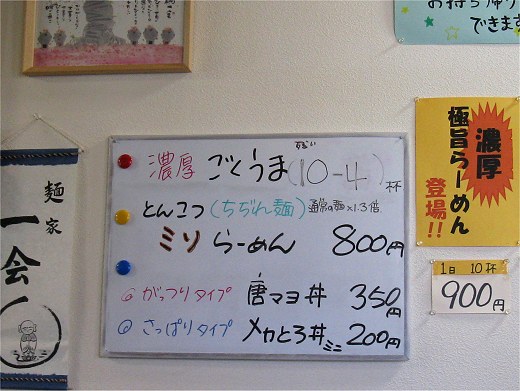 お持ち帰り
できます
麺家
一会
濃厚 ごくうま(10-4)杯
とんこつ(ちぢれ麺)通常の麺×1.3倍
ミソ らーめん 800円
がっつりタイプ 唐マヨ丼 350円
さっぱりタイプ メカとろ丼 ミニ 200円
濃厚
極旨らーめん
登場!!
1日 10杯
900円